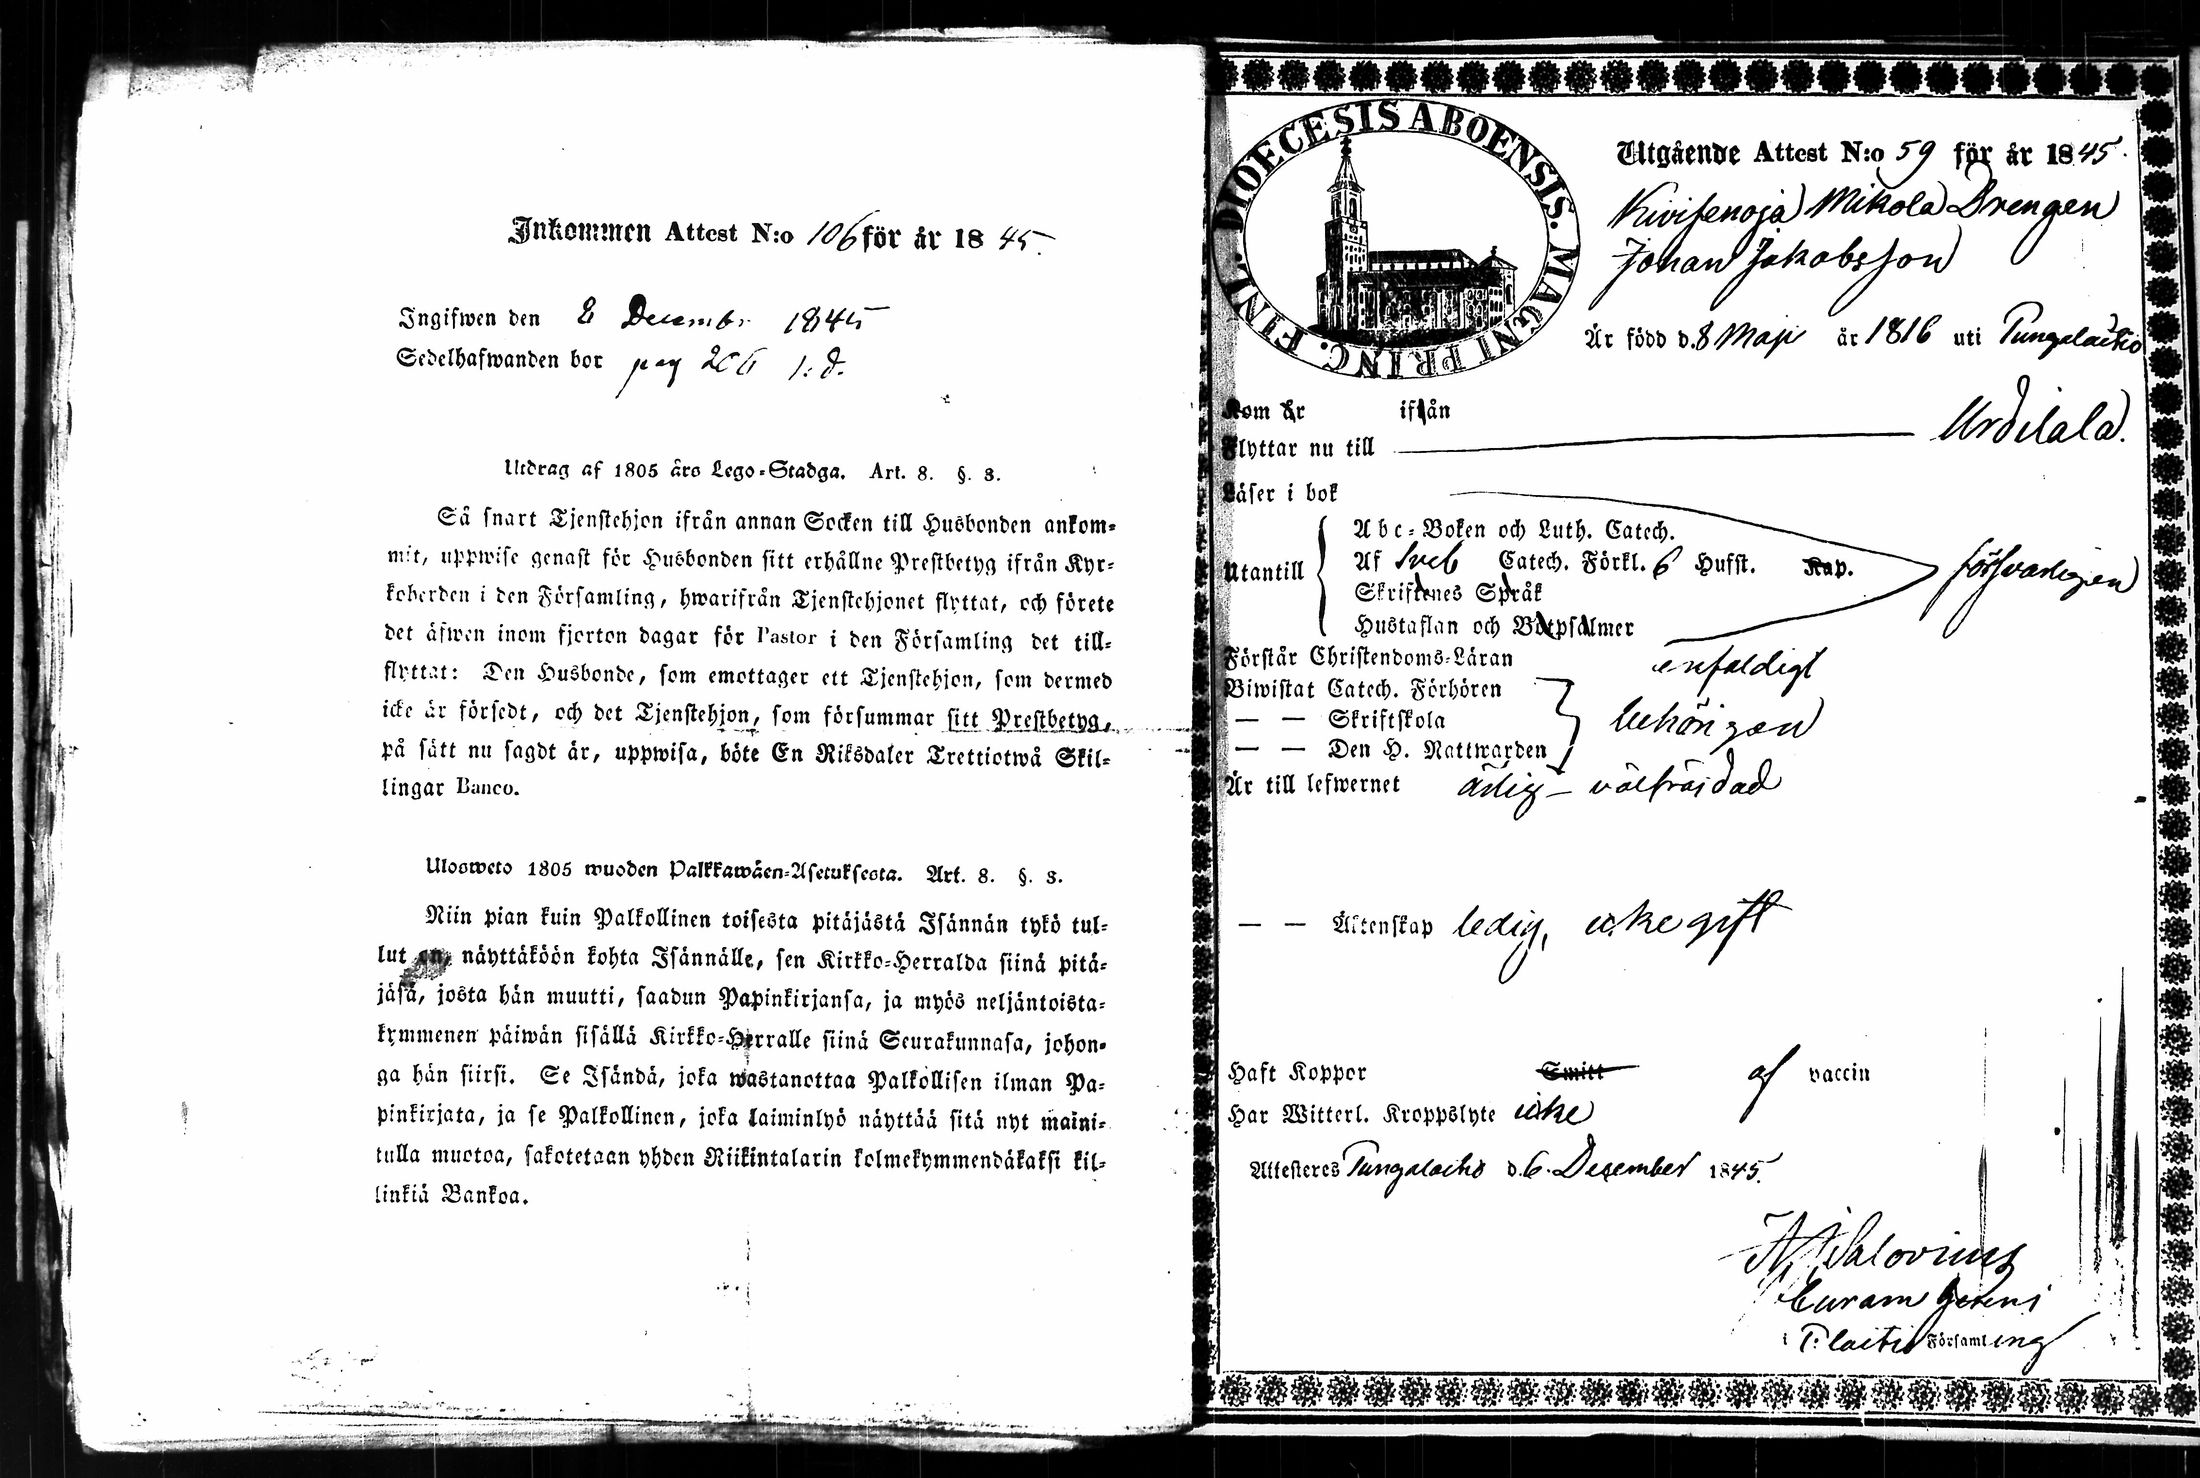 Inkommen Attest N:o 106 för år 1845.
Ingifwen den 8 Decembr 1845
Sedelhafwanden bor pag
Utdrag af 1805 års Lego-Stadga. Art. 8. §. 3.
Så snart Tjenstehjon ifrån annan Socken till Husbonden ankom-
mit, uppwise genast för Husbonden sitt erhållne Prestbetyg ifrån Kyr-
koherden i den Församling, hwarifrån Tjenstehjonet flyttat, och förete
det äfwen inom fjorton dagar för Pastor i den Församling det till-
flyttat: Den Husbonde, som emottager ett Tjenstehjon, som dermed
icke är försedt, och det Tjenstehjon, som försummar sitt Prestbetyg,
på sätt nu sagdt är, uppwisa, böte En Riksdaler Trettiotwå Skil-
lingar Banco.
Ulosweto 1805 wuoden Palkkawäen-Asetuksesta. Art. 8. §. 3.
Niin pian kuin Palkollinen toisesta pitäjästä Isännän tykö tul-
lut on, näyttäköön kohta Isännälle, sen Kirkko-Herralda siinä pitä-
jäsä, josta hän muutti, saadun Papinkirjansa, ja myös neljäntoista-
kymmenen päiwän sisällä Kirkko-Herralle siinä Seurakunnasa, johon-
ga hän siirsi. Se Isändä, joka wastanottaa Palkollisen ilman Pa-
pinkirjata, ja se Palkollinen, joka laiminlyö näyttää sitä nyt maini-
tulla muotoa, sakotetaan yhden Riikintalarin kolmekymmendäkaksi kil-
linkiä Bankoa.
DIOECESIS ABOENSIS. MAGNI PRINC. FINL.
Utgående Attest N:o 59 för år 1845.
Kivisenoja Mikola Drengen
Johan Jakobsson
Är född d. 8 Maji år 1816 uti Pungalaitio
Kom år ifrån
Flyttar nu till Urdiala.
Läser i bok
Abc-Boken och Luth. Catech.
Utantill Af Sveb Catech. Förkl. 6 Hufst. Kap. försvarligen
Skriftenes Språk
Hustaflan och Botpsalmer
Förstår Christendoms-Läran enfaldigt
Biwistat Catech. Förhören
— — Skriftskola behörigen
— — Den H. Nattwarden
Är till lefwernet ärlig - välfräjdad
— — Äktenskap ledig, icke gift
Haft Koppor Smitt af vaccin
Har Witterl. Kroppslyte icke
Attesteres Pungalaitio d. 6. December 1845.
Salovius
Curam gerens
i P:laitio Församling